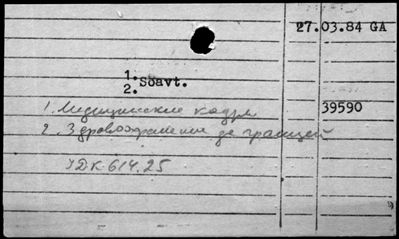 27.03.84 GA
1. Soavt.
2.
1. Медицинские кадры
39590
2. Здравоохранение за границей
УДК 614.25